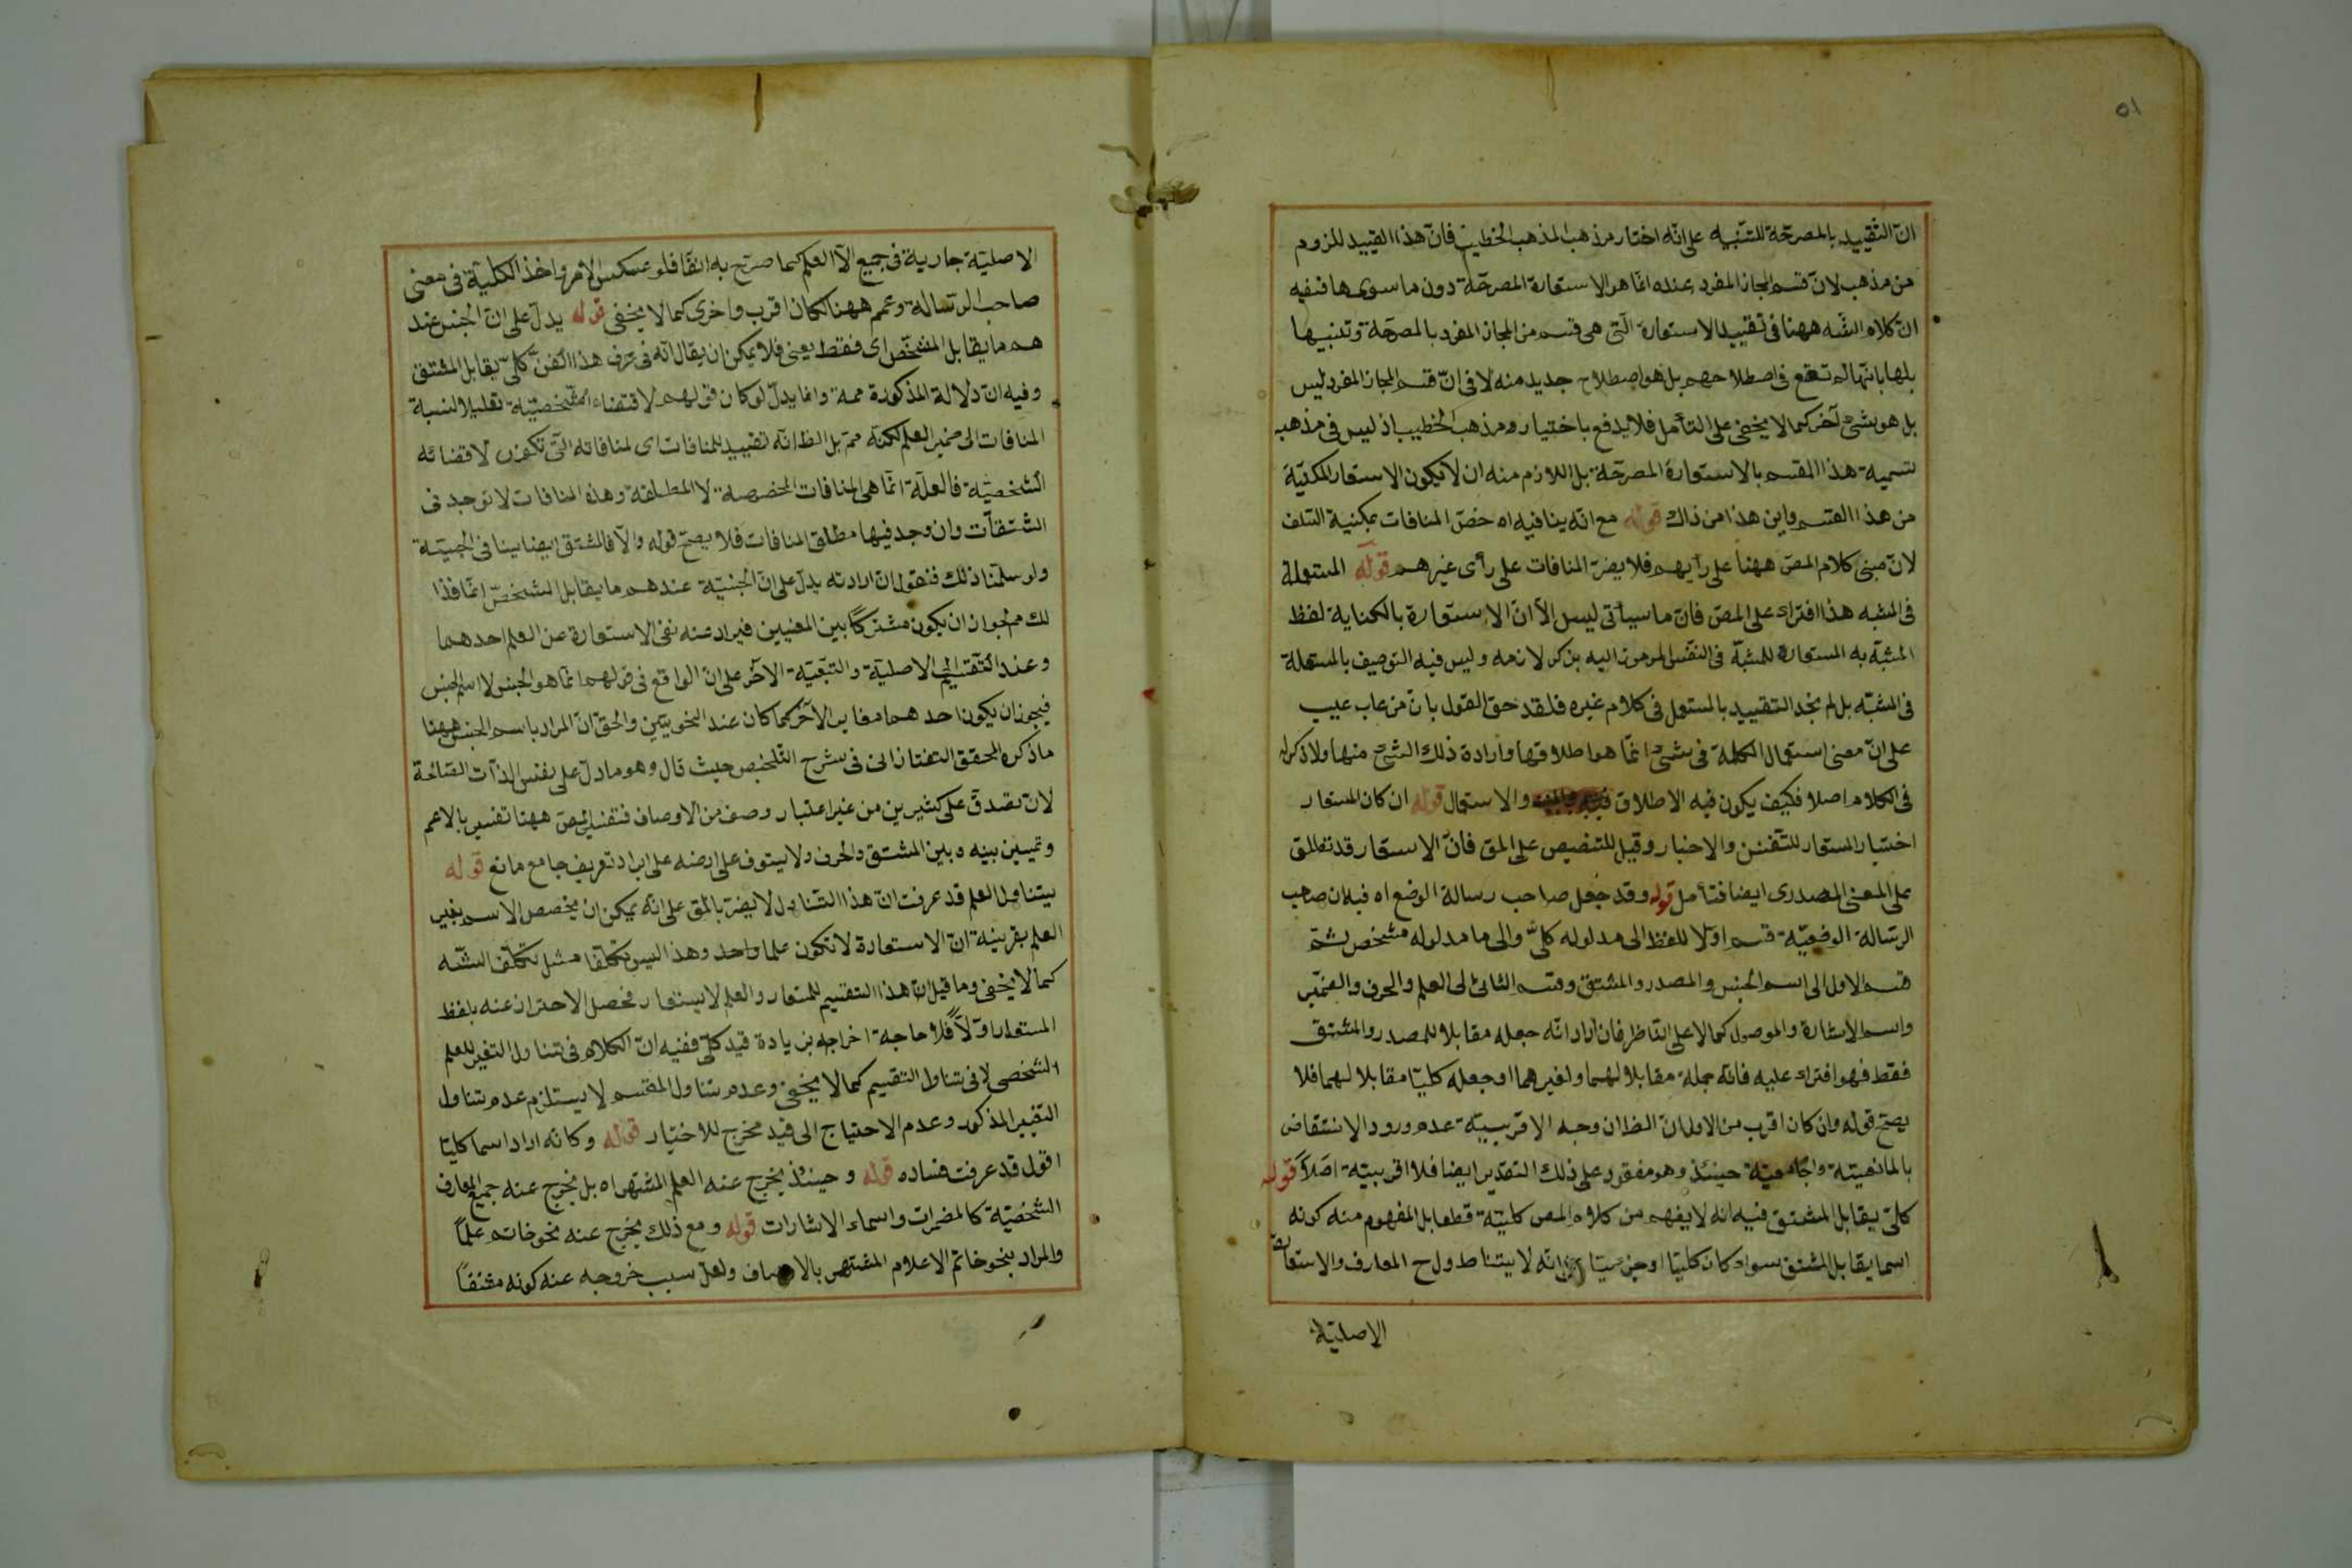 ٥١
انّ التقييد بالمصرحة للتنبيه على انّه اختار مذهب المذهب الخطيب فانّ هذا القييد للزوم
من مذهب لانّ قسم المجاز المفرد عنده انّما هو الاستعارة المصرحة دون ما سويها ففيه
انّ كلام الشه ههنا فى تقييد الاستعارة الّتى هى قسم من المجاز المفرد بالمصرحة وتنبيها
بلها بانّها لم تقع فى اصطلاحهم بل هو اصطلاح جديد منه لا فى انّ قسم المجاز المفرد ليس
بل هو بشئ آخر كما لا يخفى على التأمل فلا يدفع باختياره ومذهب الخطيب اذ ليس فى مذهبه
تسمية هذا المقسم بالاستعارة المصرحة بل اللازم منه ان لا يكون الاستعار المكنية
من هذا القسم واين هذا من ذاك قوله مع انّه ينافيه اه خصّ المنافات بمكنية السلف
لانّ مبنى كلام المص ههنا على رأيهم فلا يضرّ المنافات على رأى غيرهم قوله المستعملة
فى المشبه هذا افتراء على المص فانّ ما سيأتى ليس الاّ انّ الاستعارة بالكناية لفظ
المشبّه به المستعارة للمشبّه فى النفس المرموز اليه بذكر لازمه وليس فيه التوصيف بالمستعملة
فى المشبّه بل لم نجد التقييد بالمستعمل فى كلام غيره فلقد حق القول بانّ من عاب عيب
على انّ معنى استعمال الكلمة فى شئ انّما هو اطلاقها وارادة ذلك الشئ منها ولا ذكر له
فى الكلام اصلا فكيف يكون فيه الاطلاق والاستعمال قوله ان كان المستعار
اختيار المستعار للتفنن والاختيار وقيل للتنصيص على المق فانّ الاستعار قد تطلق
على المعنى المصدرى ايضا فتأمل قوله وقد جعل صاحب رسالة الوضع اه فيه ان صاحب
الرسالة الوضعيّة قسم اوّلا اللفظ الى مدلوله كلىّ والى ما مدلوله مشخص ثمّ
قسم الاول الى اسم الجنس والمصدر والمشتق وقسم الثانى الى العلم والحرف والضمير
واسم الاشارة والموصول كما لا على النّاظر فان اراد انّه جعله مقابلا للمصدر والمشتق
فقط فهو افتراء عليه فانّه جعله مقابلا لهما ولغيرهما او جعله كليّا مقابلا لهما فلا
يصحّ قوله وان كان اقرب من الاول انّ الظ ان وجه الاقربيّة عدم ورود الانتقاض
بالمانعيّة والجامعيّة حينئذ وهو مفقود على ذلك التقدير ايضا فلا اقربيّة اصلا قوله
كلىّ يقابل المشتق فيه انّه لا يفهم من كلام المص كليّة قطعا بل المفهوم منه كونه
اسما يقابل المشتق سواء كان كليّا او جزئيّا انّه لا يتناول ح المعارف والاستعارة
الاصليّة
الاصليّة جارية فى جميع الاّ العلم كما صرّح به انفًا فلو عكس الامر واخذ الكليّة فى معنى
صاحب الرسالة وعمم ههنا لكان اقرب واخرى كما لا يخفى قوله يدلّ على انّ الجنس عند
هم ما يقابل المشخّص اى فقط يعنى فلا يمكن ان يقال انّه فى عرف هذا الفنّ كلىّ يقابل المشتق
وفيه انّ دلالة المذكورة ممة وانما يدلّ لو كان قولهم لاقتضاء المشخصيّة تعليلا لنسبة
المنافات الى ضمير العلم لكنّه ممّ بل الظ انّه تقييد للمنافات اى لمنافاته الّتى تكون لاقتضائه
الشخصيّة فالعلّة انّما هى المنافات المخصوصة لا المطلقة وهذه المنافات لا توجد فى
الشتقاّت وان وجد فيها مطلق المنافات فلا يصحّ قوله والاّ فالمشتق ايضا ينافى الجنسيّة
ولو سلّمنا ذلك فنقول انّ ارادته يدلّ على انّ الجنسيّة عندهم ما يقابل الشخصّ انّما فذا
لك مم لجواز ان يكون مشتركًا بين المعنيين فيراد عنه نفى الاستعارة عن العلم احدهما
وعند التقسيم الى الاصليّة والتبعيّة الآخر على انّ الواقع فى قولهم انّما هو الجنس لا اسم الجنس
فيجوز ان يكون احدهما مغاير الآخر كما كان عند النحويّين والحق انّ المراد باسم الجنس ههنا
ما ذكره المحقق التفتازانى فى شرح التّلخيص حيث قال وهو ما دلّ على نفس الذّات الصّالحة
لان تصدق على كثيرين من غير اعتبار وصف من الاوصاف فتفسير المص ههنا تفسير بالاعم
وتميين بينه وبين المشتق والحرف ولا يتوقف على ارضه على ايراد تعريف جامع مانع قوله
يتناول العلم قد عرفت انّ هذا التناول لا يضرّ بالمق على انّه يمكن ان يخصص الاسم بغير
العلم بقرينة انّ الاستعارة لا تكون علما واحد وهذا ليس تكلّفا مثل تكلّف الشّه
كما لا يخفى وما قيل انّ هذا التقسيم للمستعار والعلم لا يستعار فحصل الاحتراز عنه بلفظ
المستعار اوّلاً فلا حاجة اخراجه بزيادة قيد كلىّ ففيه انّ الكلام فى تناول التفسير للعلم
الشخصى لا فى تناول التقسيم كما لا يخفى وعدم تناول المقسم لا يستلزم عدم تناول
التفسير المذكور وعدم الاحتياج الى قيد مخرج للاختيار قوله وكانّه اراد اسما كليّا
اقول قد عرفت فساده قوله وحينئذ يخرج عنه العلم المشتهر اه بل يخرج عنه جميع المعارف
الشخصيّة كالمضمرات واسماء الاشارات قوله ومع ذلك يخرج عنه نحو خاتم علمًا
والمراد بنحو خاتم الاعلام المشتهر بالاوصاف ولعلّ سبب خروجه عنه كونه مقتضيًا